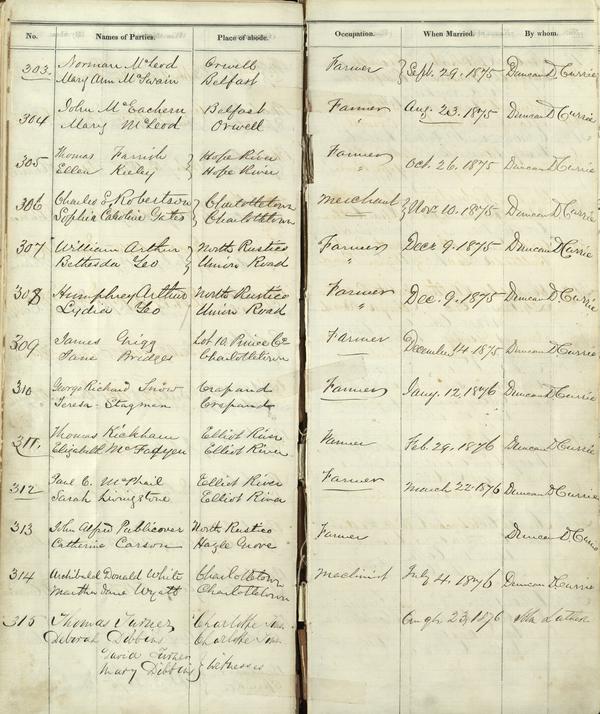 No. Names of Parties. Place of abode. Occupation. When Married. By whom.
303. Norman McLeod Orwell Farmer Sept. 29. 1875 Duncan D Currie
Mary Ann McSwain Belfast
304 John McEachern Belfast Farmer Aug. 23. 1875 Duncan D Currie
Mary McLeod Orwell
305 Thomas Farrish Hope River Farmer Oct. 26. 1875 Duncan D Currie
Ellen Hope River "
306 Charles E Robertson Charlottetown Merchant Nov. 10. 1875 Duncan D Currie
Sophia Caroline Yates Charlottetown
307 William Arthur North Rustico Farmer Decr 9. 1875 Duncan D Currie
Bethesda Leo Union Road "
308 Humphrey Arthur North Rustico Farmer Dec. 9. 1875 Duncan D Currie
Lydia Leo Union Road "
309 James Grigg Lot 10 Prince Co Farmer December 14 1875 Duncan D Currie
Jane Bridges Charlottetown
310 George Richard Snow Crapaud Farmer Jany. 12. 1876 Duncan D Currie
Teresa Stagman Crapaud
311. Thomas Kickham Elliot River Farmer Feb. 29. 1876 Duncan D Currie
Elizabeth McFadyen Elliot River
312 Paul C. McPhail Elliot River Farmer March 22. 1876 Duncan D Currie
Sarah Livingstone Elliot River
313 John Alfred Publicover North Rustico Farmer Duncan D Currie
Catherine Carson Hazle Grove
314 Archibald Donald White Charlottetown Machinist July 4. 1876 Duncan D Currie
Martha Jane Wyatt Charlottetown
315 Thomas Turner Charlotte Town 23, 1876
Deborah Dibbins Charlotte Town
David Turner
Mary Dibbins } Witnesses